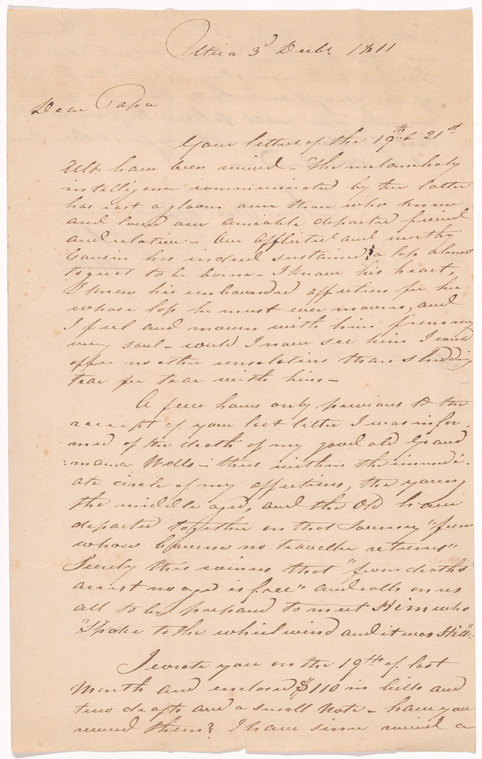 Utica 3d Decbr 1811
Dear Papa
Your letters of the 19th & 21st
Ulto. have been received - The melancholy
intelligence communicated by the latter
has cast a gloom over those who knew
and loved our amiable departed friend
and relation - Our afflicted and worthy
Cousin has indeed sustained a loss almost
too great to be borne - I know his heart,
I knew his unbounded affection for her
whose loss he must ever mourn, and
I feel and mourn with him from my
very soul - could I now see him I could
offer no other consolation than shedding
tear for tear with him -
A few hours only previous to the
receipt of your last letter I was infor-
med of the death of my good old Grand
mama Wells - thus within the immedi-
ate circle of my affections, the young,
the middle aged, and the Old have
departed together on that Journey "from
whose bourne no traveller returns"
Surely this warns that "from death's
arrest no age is free" and calls on us
all to be prepared to meet Him who
"Spoke to the whirlwind and it was Still".
I wrote you on the 19th of last
Month and enclosed $110 in bills and
two drafts and a small Note - have you
received them? I have since received a